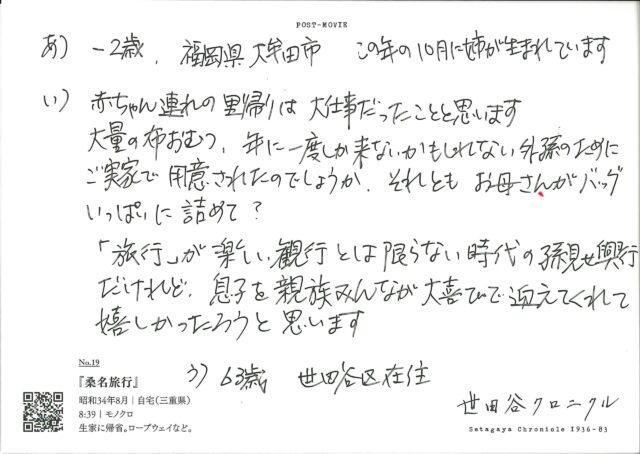 POST-MOVIE
あ) -2歳, 福岡県大牟田市 この年の10月に姉が生まれています
い) 赤ちゃん連れの里帰りは大仕事だったことと思います
大量の布おむつ、年に一度しか来ないかもしれない外孫のために
ご実家で用意されたのでしょうか、それともお母さんがバッグ
いっぱいに詰めて?
「旅行」が楽しい観行とは限らない時代の孫見せ興行
だけれど、息子を親族みんなが大喜びで迎えてくれて
嬉しかったろうと思います
う) 63歳 世田谷区在住
No.19
『桑名旅行』
昭和34年8月|自宅(三重県)
8:39|モノクロ
生家に帰省。ロープウェイなど。
世田谷クロニクル
Setagaya Chronicle 1936-83